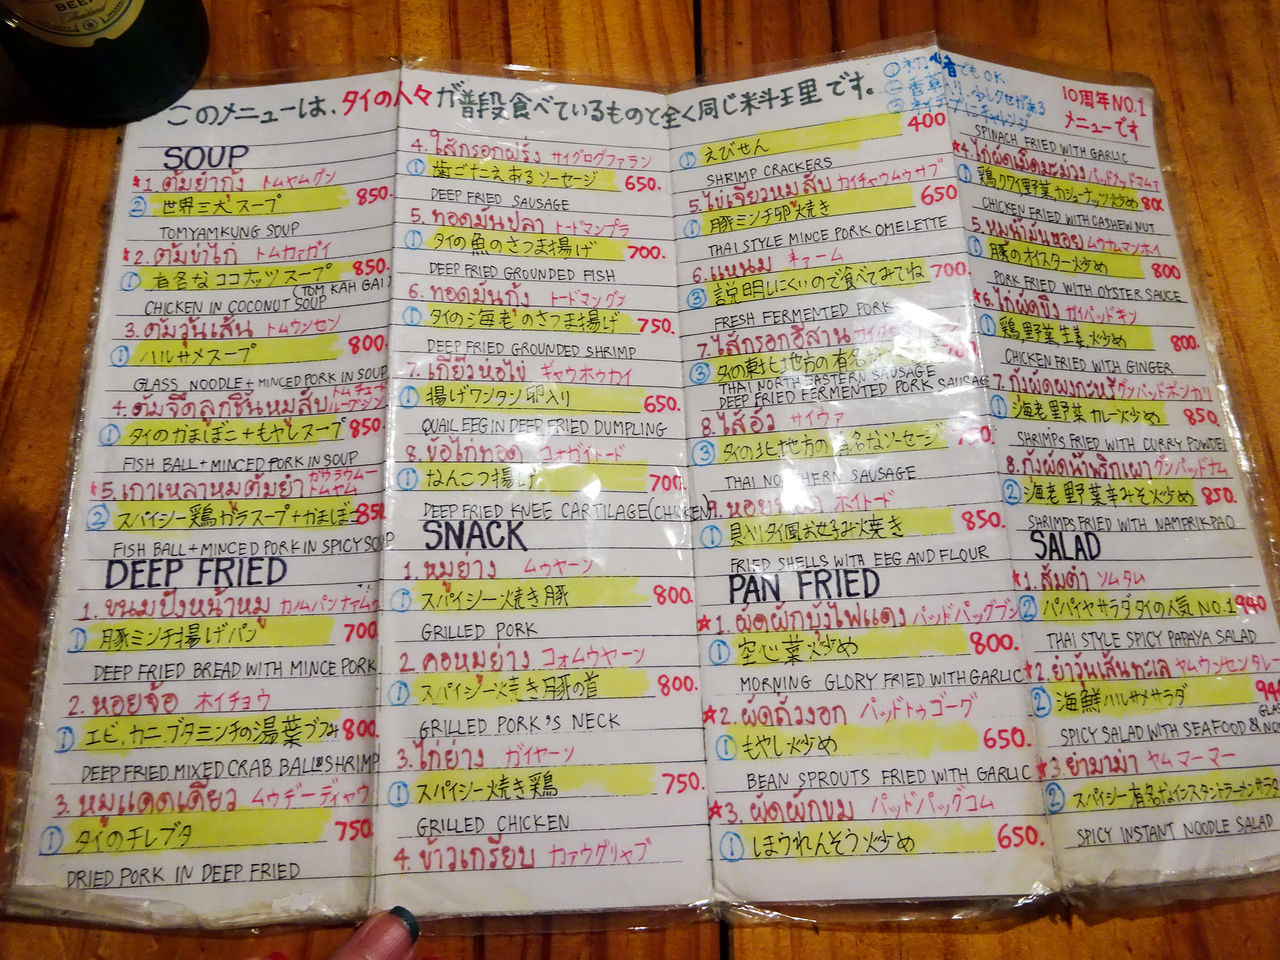 BEER
このメニューは、タイの人々が普段食べているものと全く同じ料理です。
でもOK.
10周年NO.1
メニューです
SOUP
★1. ต้มยำกุ้ง トムヤムクン
② 世界三大スープ 850.
TOMYAMKUNG SOUP
★2. ต้มข่าไก่ トムカァガイ
① 有名なココナッツスープ 850.
(TOM KAH GAI)
CHICKEN IN COCONUT SOUP
3. ต้มวุ้นเส้น トムウンセン
① ハルサメスープ 800.
GLASS NOODLE + MINCED PORK IN SOUP
4. ต้มจืดลูกชิ้นหมูสับ
① タイのかまぼこ+もやしスープ 850.
FISH BALL + MINCED PORK IN SOUP
★5. เกาเหลาหมูต้มยำ ガウラウムートムヤム
② スパイシー鶏ガラスープ+かまぼこ 850
FISH BALL + MINCED PORK IN SPICY SOUP
DEEP FRIED
1. ขนมปังหน้าหมู
① 豚ミンチ揚げパン 700
DEEP FRIED BREAD WITH MINCE PORK
2. หอยจ้อ ホイチョウ
① エビ、カニ、ブタミンチの湯葉 800
DEEP FRIED MIXED CRAB BALL & SHRIMP
3. หมูแดดเดียว ムゥデーディャウ
① タイのチレブタ 750.
DRIED PORK IN DEEP FRIED
4. ไส้กรอกฝรั่ง サイグログファラン
① 歯ごたえあるソーセージ 650.
DEEP FRIED SAUSAGE
5. ทอดมันปลา トードマンプラ
① タイの魚のさつま揚げ 700.
DEEP FRIED GROUNDED FISH
6. ทอดมันกุ้ง トードマングン
① タイの海老のさつま揚げ 750.
DEEP FRIED GROUNDED SHRIMP
7. เกี๊ยวห่อไข่ ギャウホゥカイ
① 揚げワンタン卵入り 650.
QUAIL EEG IN DEEP FRIED DUMPLING
8. ข้อไก่ทอด コォガイトード
① なんこつ揚げ 700.
DEEP FRIED KNEE CARTILAGE (CHICKEN)
SNACK
1. หมูย่าง ムゥヤーン
① スパイシー焼き豚 800.
GRILLED PORK
2. คอหมูย่าง コォムウヤーン
① スパイシー焼き豚の首 800.
GRILLED PORK'S NECK
3. ไก่ย่าง ガイヤーン
① スパイシー焼き鶏 750.
GRILLED CHICKEN
4. ข้าวเกรียบ カァウグリャブ
① えびせん 400
SHRIMP CRACKERS
5. ไข่เจียวหมูสับ カイチャウムウサブ
① 豚ミンチ卵焼き 650
THAI STYLE MINCE PORK OMELETTE
6. แหนม ネァーム
③ 説明しにくいので食べてみてね 700.
FRESH FERMENTED PORK
7. ไส้กรอกอีสาน
③ タイの東北地方の有名な
THAI NORTH EASTERN SAUSAGE
DEEP FRIED FERMENTED PORK SAUSAGE
8. ไส้อั่ว サイウァ
③ タイの北地方の有名なソーセージ
THAI NORTHERN SAUSAGE
9. หอยทอด ホイトード
① 貝入りタイ風お好み焼き 850.
FRIED SHELLS WITH EEG AND FLOUR
PAN FRIED
★1. ผัดผักบุ้งไฟแดง パッドパッグブン
① 空心菜炒め 800.
MORNING GLORY FRIED WITH GARLIC
★2. ผัดถั่วงอก パッドトゥゴーグ
① もやし炒め 650.
BEAN SPROUTS FRIED WITH GARLIC
★3. ผัดผักขม パッドパッグコム
① ほうれんそう炒め 650.
SPINACH FRIED WITH GARLIC
★4. ไก่ผัดเม็ดมะม่วง
① 鶏、クワイ、野菜、カシューナッツ炒め 800
CHICKEN FRIED WITH CASHEW NUT
5. หมูน้ำมันหอย ムウナムマンホイ
① 豚のオイスター炒め 800
PORK FRIED WITH OYSTER SAUCE
★6. ไก่ผัดขิง ガイパッドキン
① 鶏、野菜、生姜炒め 800.
CHICKEN FRIED WITH GINGER
7. กุ้งผัดผงกะหรี่ グンパッドポンカリ
① 海老、野菜カレー炒め 850.
SHRIMPS FRIED WITH CURRY POWDER
8. กุ้งผัดน้ำพริกเผา グンパッドナム
② 海老、野菜辛みそ炒め 850.
SHRIMPS FRIED WITH NAMPRIK PAO
SALAD
★1. ส้มตำ ソムタム
② パパイヤサラダ タイの人気NO.1 940
THAI STYLE SPICY PAPAYA SALAD
★2. ยำวุ้นเส้นทะเล ヤムウンセンタレー
② 海鮮ハルサメサラダ 940
SPICY SALAD WITH SEAFOOD &
★3. ยำมาม่า ヤムマーマー
② スパイシー有名なインスタントラーメンサラダ
SPICY INSTANT NOODLE SALAD